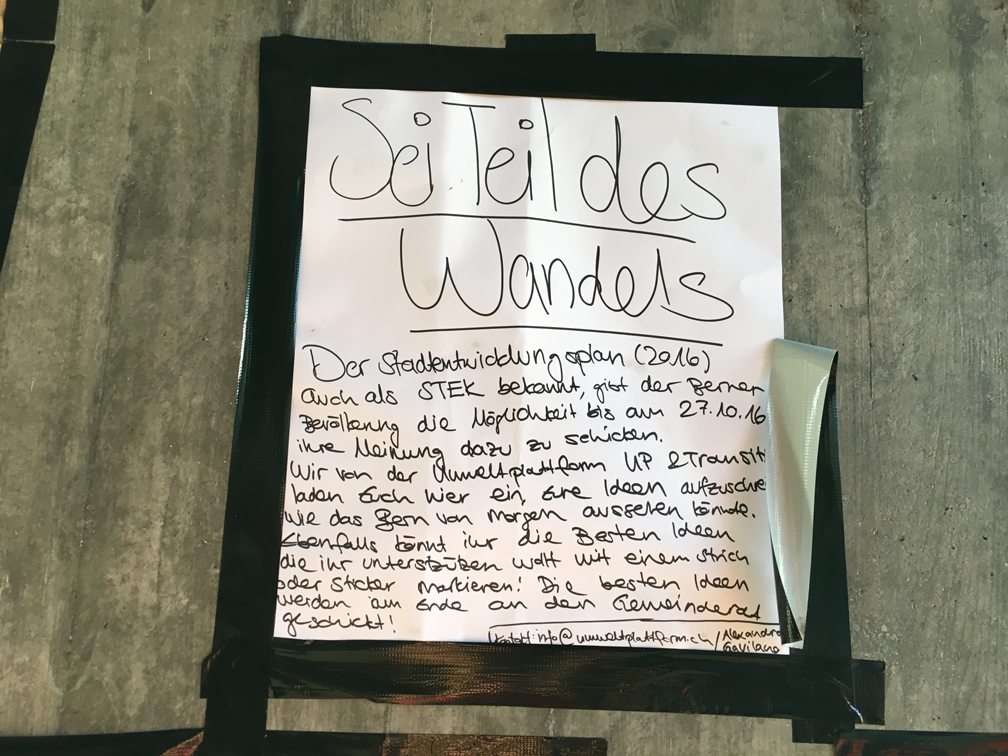 Sei Teil des
Wandels
Der Stadtentwicklungsplan (2016)
auch als STEK bekannt, gibt der Berner
Bevölkerung die Möglichkeit bis am 27.10.16
ihre Meinung dazu zu schicken.
Wir von der Umweltplattform UP & Transiti
laden Euch hier ein, eure Ideen aufzuschre
wie das Bern von Morgen aussehen könnte.
Ebenfalls könnt ihr die Besten Ideen
die ihr unterstützen wollt mit einem Strich
oder Sticker markieren! Die besten Ideen
werden am Ende an den Gemeinderat
geschickt!
Kontakt: info@umweltplattform.ch / Alexandra
Gavilano